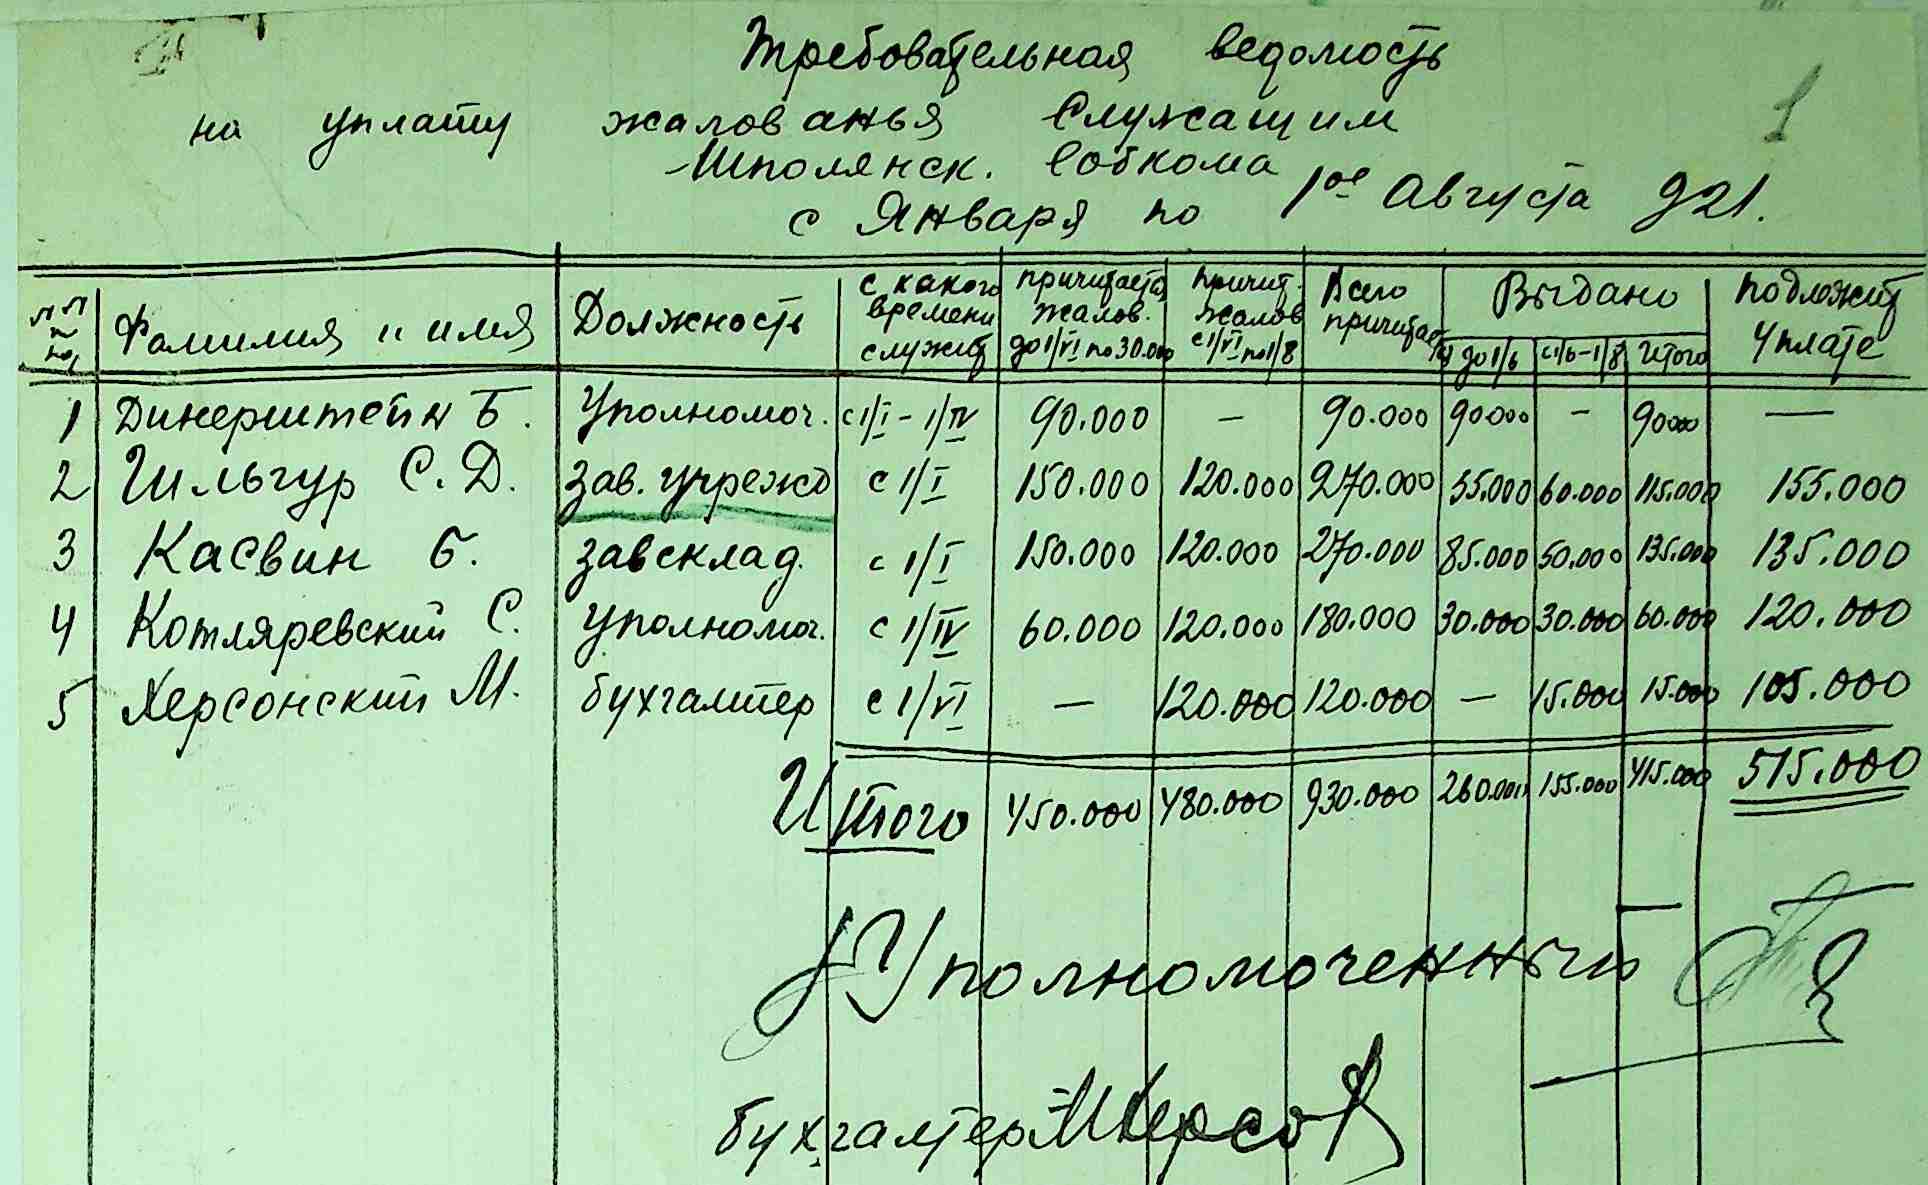 Требовательная ведомость
1
на уплату жалованья Служащим
Шполянск. Собкома
с Января по 1ое Августа 921.
№№ п по | Фамилия и имя | Должность | с какого времени служит | причитается жалов. до 1/VI по 30.000 | причит. жалов с 1/VI по 1/8 | Всего причитается | Выдано | подлежит уплате
до 1/6 | с 1/6-1/8 | Итого
1 | Динерштейн Б. | Уполномоч. | с 1/I - 1/IV | 90.000 | — | 90.000 | 90000 | - | 90000 | —
2 | Шильгур С.Д. | зав. учрежд | с 1/I | 150.000 | 120.000 | 270.000 | 55.000 | 60.000 | 115.000 | 155.000
3 | Касвин Б. | завсклад. | с 1/I | 150.000 | 120.000 | 270.000 | 85.000 | 50.000 | 135.000 | 135.000
4 | Котляревский С. | уполномоч. | с 1/IV | 60.000 | 120.000 | 180.000 | 30.000 | 30.000 | 60.000 | 120.000
5 | Херсонский М. | бухгалтер | с 1/VI | — | 120.000 | 120.000 | — | 15.000 | 15.000 | 105.000
Итого | 450.000 | 480.000 | 930.000 | 260.000 | 155.000 | 415.000 | 515.000
Уполномоченный
бухгалтер МХерсо